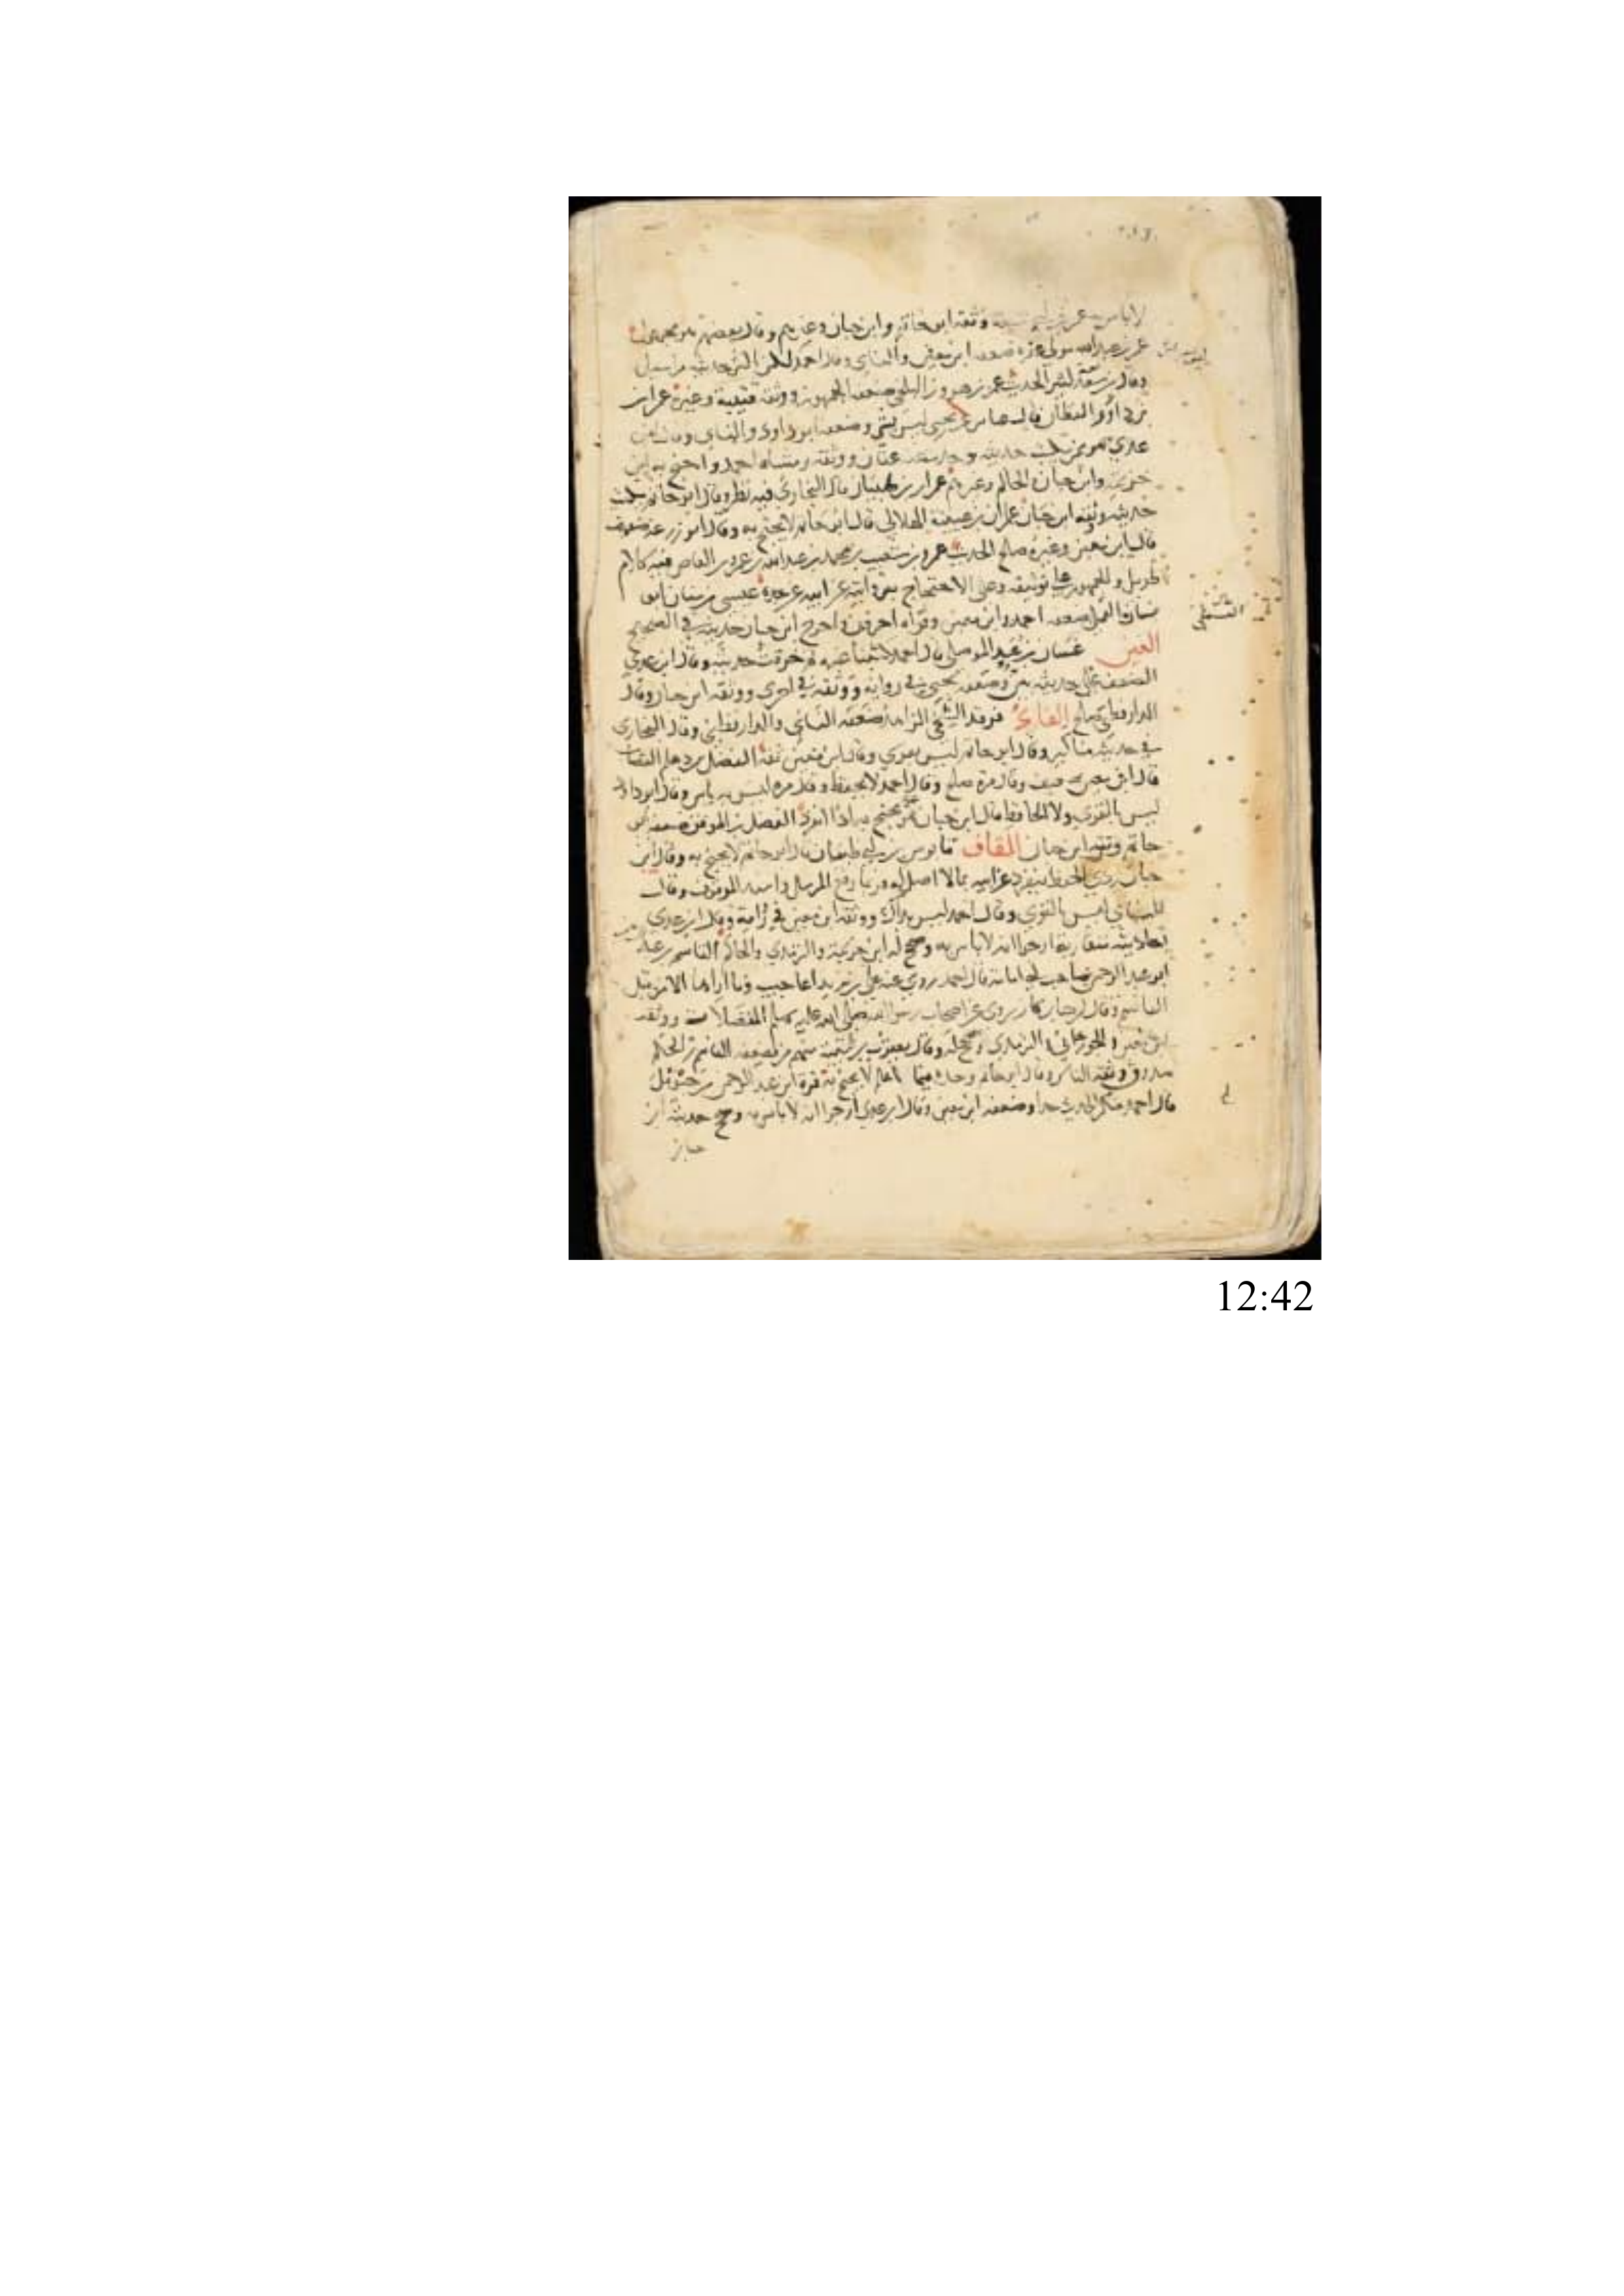 لاباس به عمر بن ابي شيبة وثقه ابن حاتم وابن حبان وغيرهم وقال بعضهم
عمر بن عبدالله مولى غفرة ضعفه ابن معين والنساي وقال احمد لكن اكثر حديثه مراسيل
وقال بن سعد كثير الحديث عمر بن هرون البلخي ضعفه الجمهور ووثقه قتيبة وغيره عمران
بن داور القطان قال عباس عن يحيى ليس بشي وضعفه ابو داود والنساي وقال ابن
عدي هو ممن يكتب حديثه وحدث عنه عفان ووثقه ومشاه احمد واحتج به ابن
خزيمة وابن حبان والحاكم وغيرهم عمران بن ظبيان قال البخاري فيه نظر وقال ابو حاتم يكتب
حديثه وثقه ابن حبان عمران بن عيينة الهلالي قال ابو حاتم لا يحتج به وقال ابو زرعة ضعيف
قال ابن معين وغيره صالح الحديث عمرو بن شعيب بن محمد بن عبدالله بن عمرو بن العاص فيه كلام
طويل والجمهور على توثيقه وعلى الاحتجاج بروايته عن ابيه عن جده عيسى بن سنان ابو
سنان القسملي ضعفه احمد وابن معين وقواه اخرون واخرج ابن حبان حديثه في الصحيح
الغين غسان بن عبيد الموصلي قال احمد كتبنا عنه ثم خرقت حديثه وقال ابن عدي
الضعف على حديثه بين وضعفه يحيى في رواية ووثقه في اخرى ووثقه ابن حبان وقال
الدارقطني صالح الفاء فرقد السبخي الزاهد ضعفه النساي والدارقطني وقال البخاري
في حديثه مناكير وقال ابو حاتم ليس بقوي وقال ابن معين ثقة الفضل بن دلهم القصاب
قال ابن معين ضعيف وقال مرة صالح وقال احمد لا يحفظ وقال مرة ليس به باس وقال ابو داود
ليس بالقوي ولا الحافظ وقال ابن حبان غير محتج به اذا انفرد الفضل بن الموفق ضعفه ابو
حاتم ووثقه ابن حبان القاف قابوس بن ابي ظبيان قال ابو حاتم لا يحتج به وقال ابن
حبان ردي الحفظ ينفرد عن ابيه بما لا اصل له وربما رفع المرسل واسند الموقوف وقال
النساي ليس بالقوي وقال احمد ليس بذاك ووثقه ابن معين في رواية وقال ابن عدي
احاديثه متقاربة ارجوا انه لا باس به وصحح له ابن خزيمة والترمذي والحاكم القاسم بن عبد
ابو عبد الرحمن صاحب ابي امامة قال احمد روى عنه علي بن يزيد اعاجيب وما اراها الا من قبل
القاسم وقال ابن حبان كان يروي عن اصحاب رسول الله صلى الله عليه وسلم المعضلات ووثقه
ابن معين والجوزجاني والترمذي وصحح له وقال يعقوب بن شيبة منهم من يضعفه القاسم بن الحكم
صدوق وثقه الناس وقال ابو حاتم وحده فيما اعلم لا يحتج به قرة بن عبد الرحمن بن حيوئيل
قال احمد منكر الحديث جدا وضعفه ابن معين وقال ابن عدي ارجوا انه لا باس به وصحح حديثه ابن
حبان
القسملي
12:42